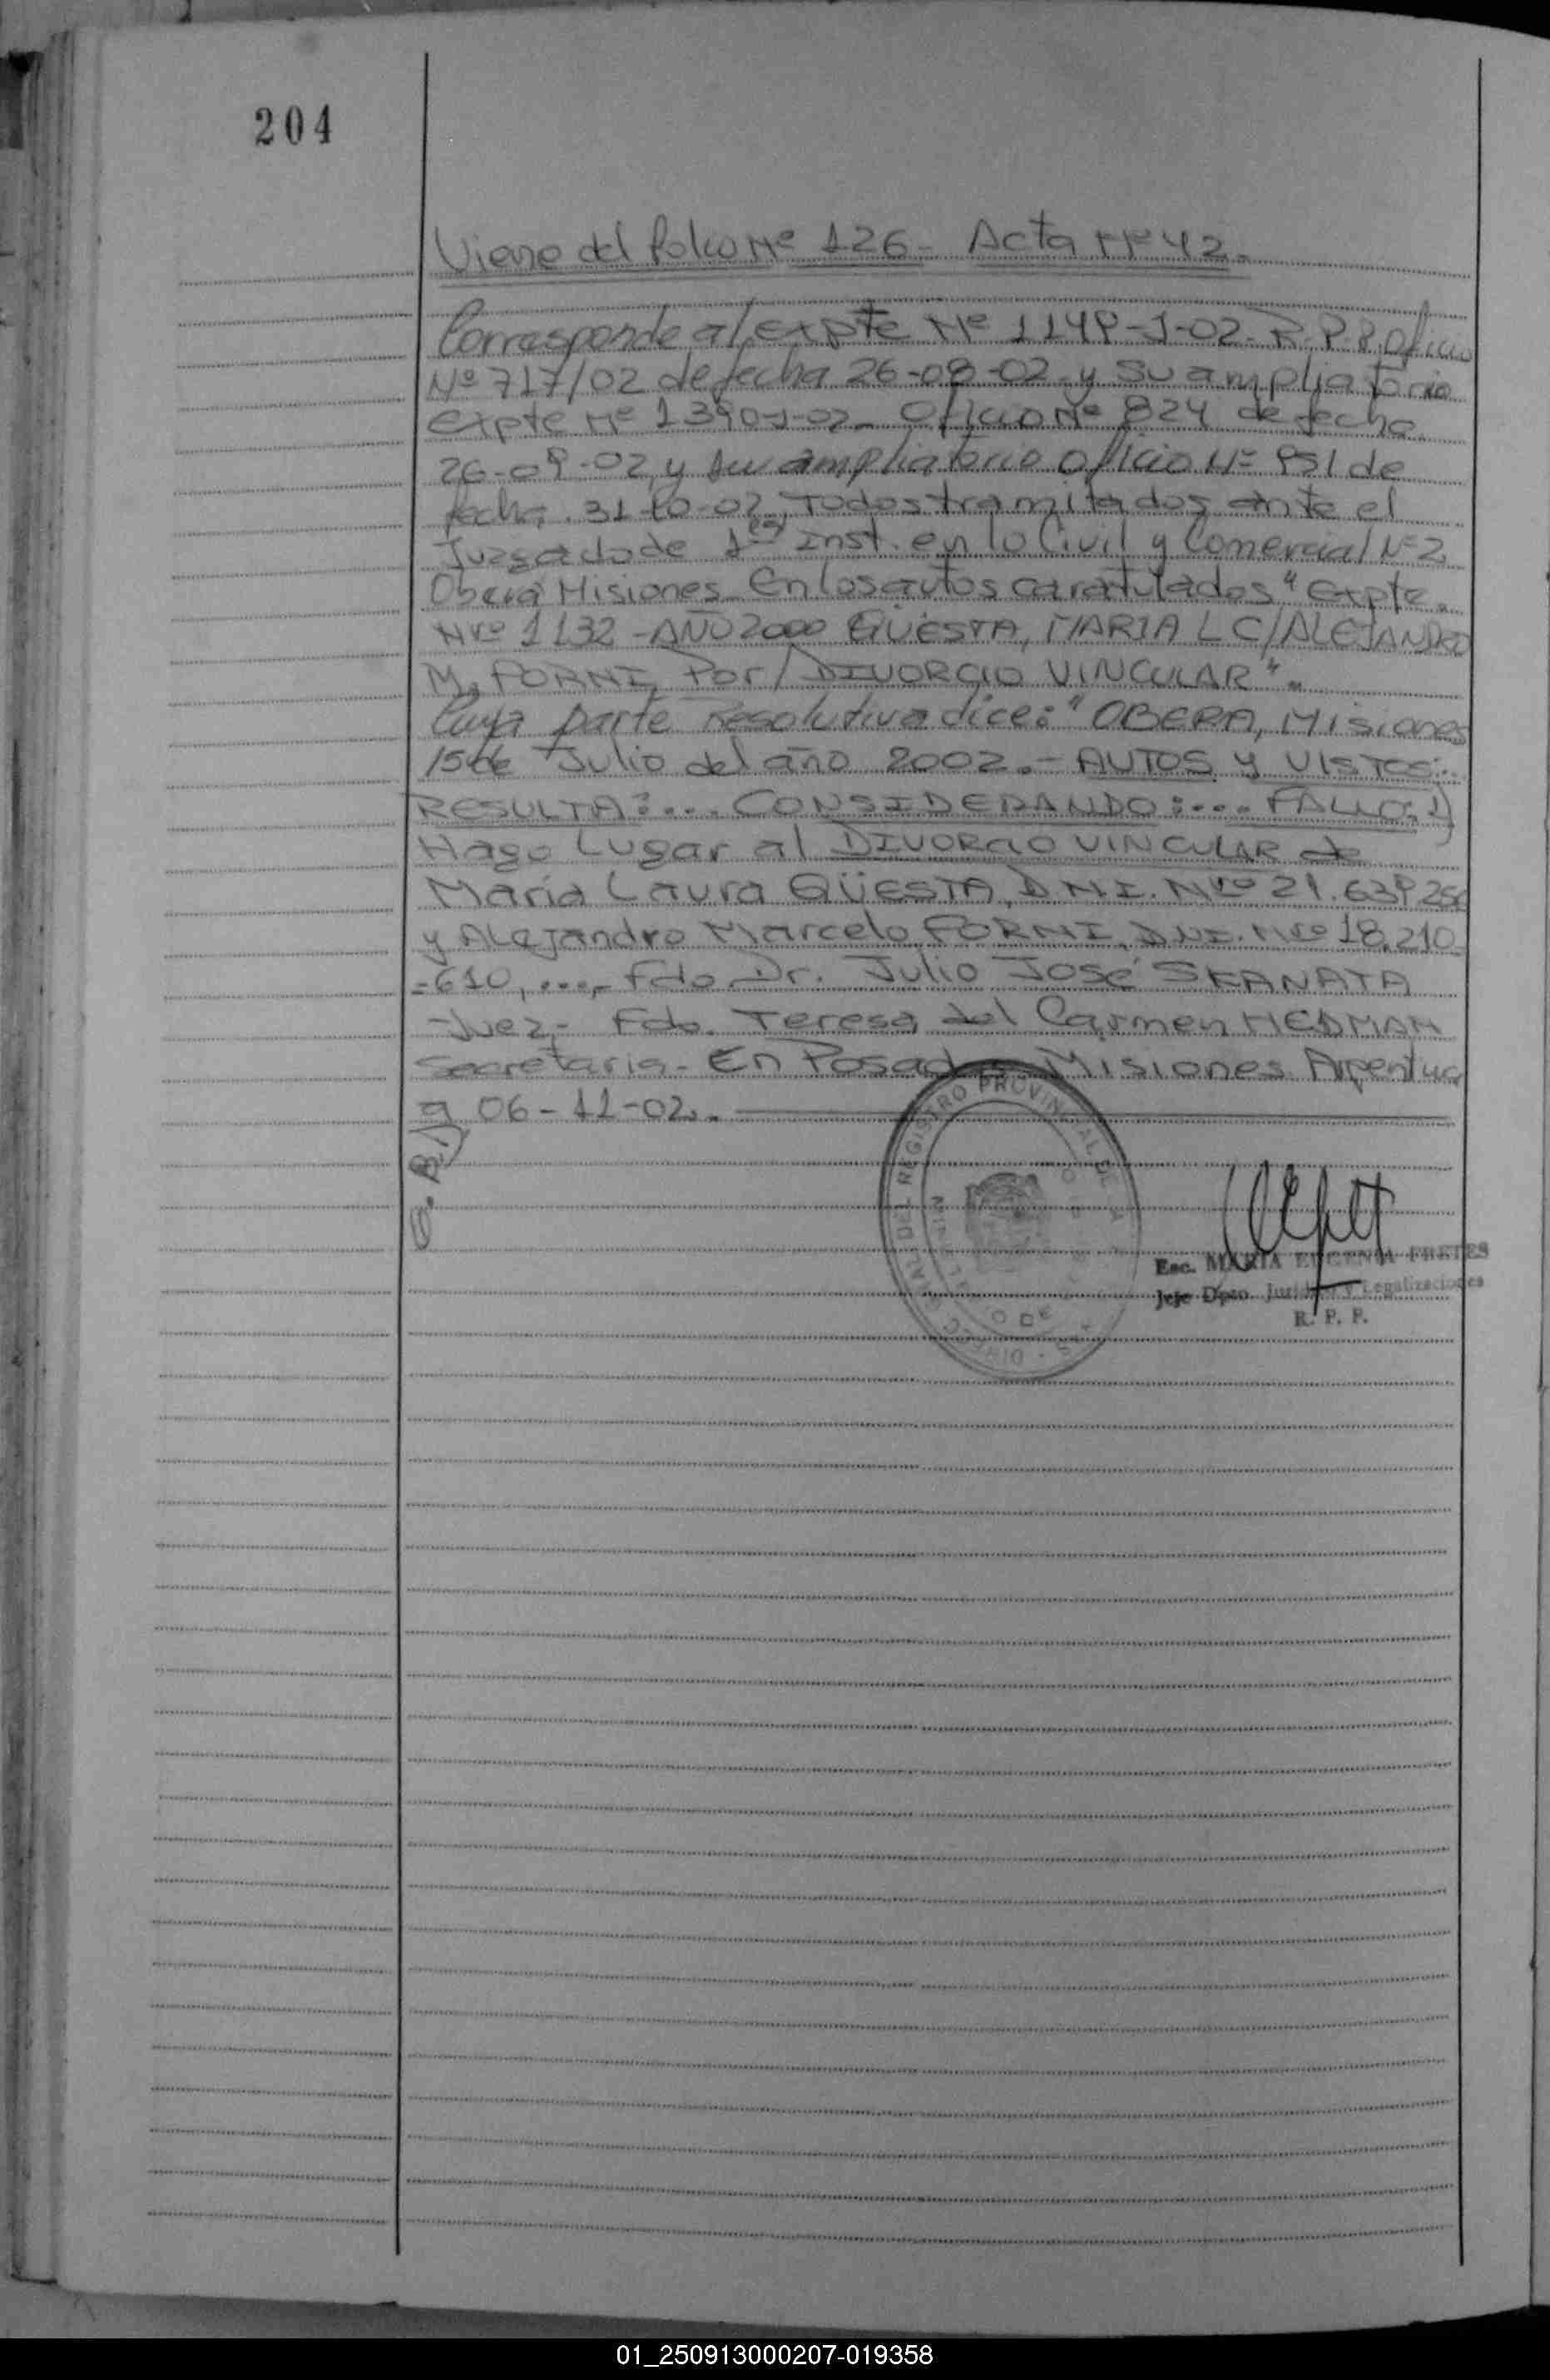 204
Viene del Folio Nº 126 - Acta Nº 42.
Corresponde al, expte Nº 1149-J-02- R.P.P. Oficio
Nº 717/02 de fecha 26-08-02 y su ampliatorio
expte Nº 1390-J-02- Oficio Nº 824 de fecha
26-09-02, y su ampliatorio oficio Nº 951 de
fecha 31-10-02, Todos tramitados ante el
Juzgado de 1era Inst. en lo Civil y Comercial Nº 2
Oberá Misiones - En los autos caratulados "Expte.
Nro 1132 - AÑO 2000 QÜESTA, MARIA L C/ALEJANDRO
M. FORNI, Por/ DIVORCIO VINCULAR".
Cuya parte Resolutiva dice: "OBERA, Misiones
15 de Julio del año 2002.- AUTOS y VISTOS:..
RESULTA:.... CONSIDERANDO:.... FALLO: 1)
Hago Lugar al DIVORCIO VINCULAR de
María Laura QÜESTA, D.N.I. Nro 21.639.256
y Alejandro Marcelo FORNI, DNI. Nro 18.210-
=610, ...,- Fdo Dr. Julio José SKANATA
Juez,- Fdo. Teresa del Carmen HEDMAN
Secretaria- En Posadas Misiones Argentina
a 06-11-02..
REGISTRO PROVINCIAL DE
Esc. MARIA EUGENIA FRETES
Jefe Dpto. Jurídico y Legalizaciones
R. P. P.
01_250913000207-019358